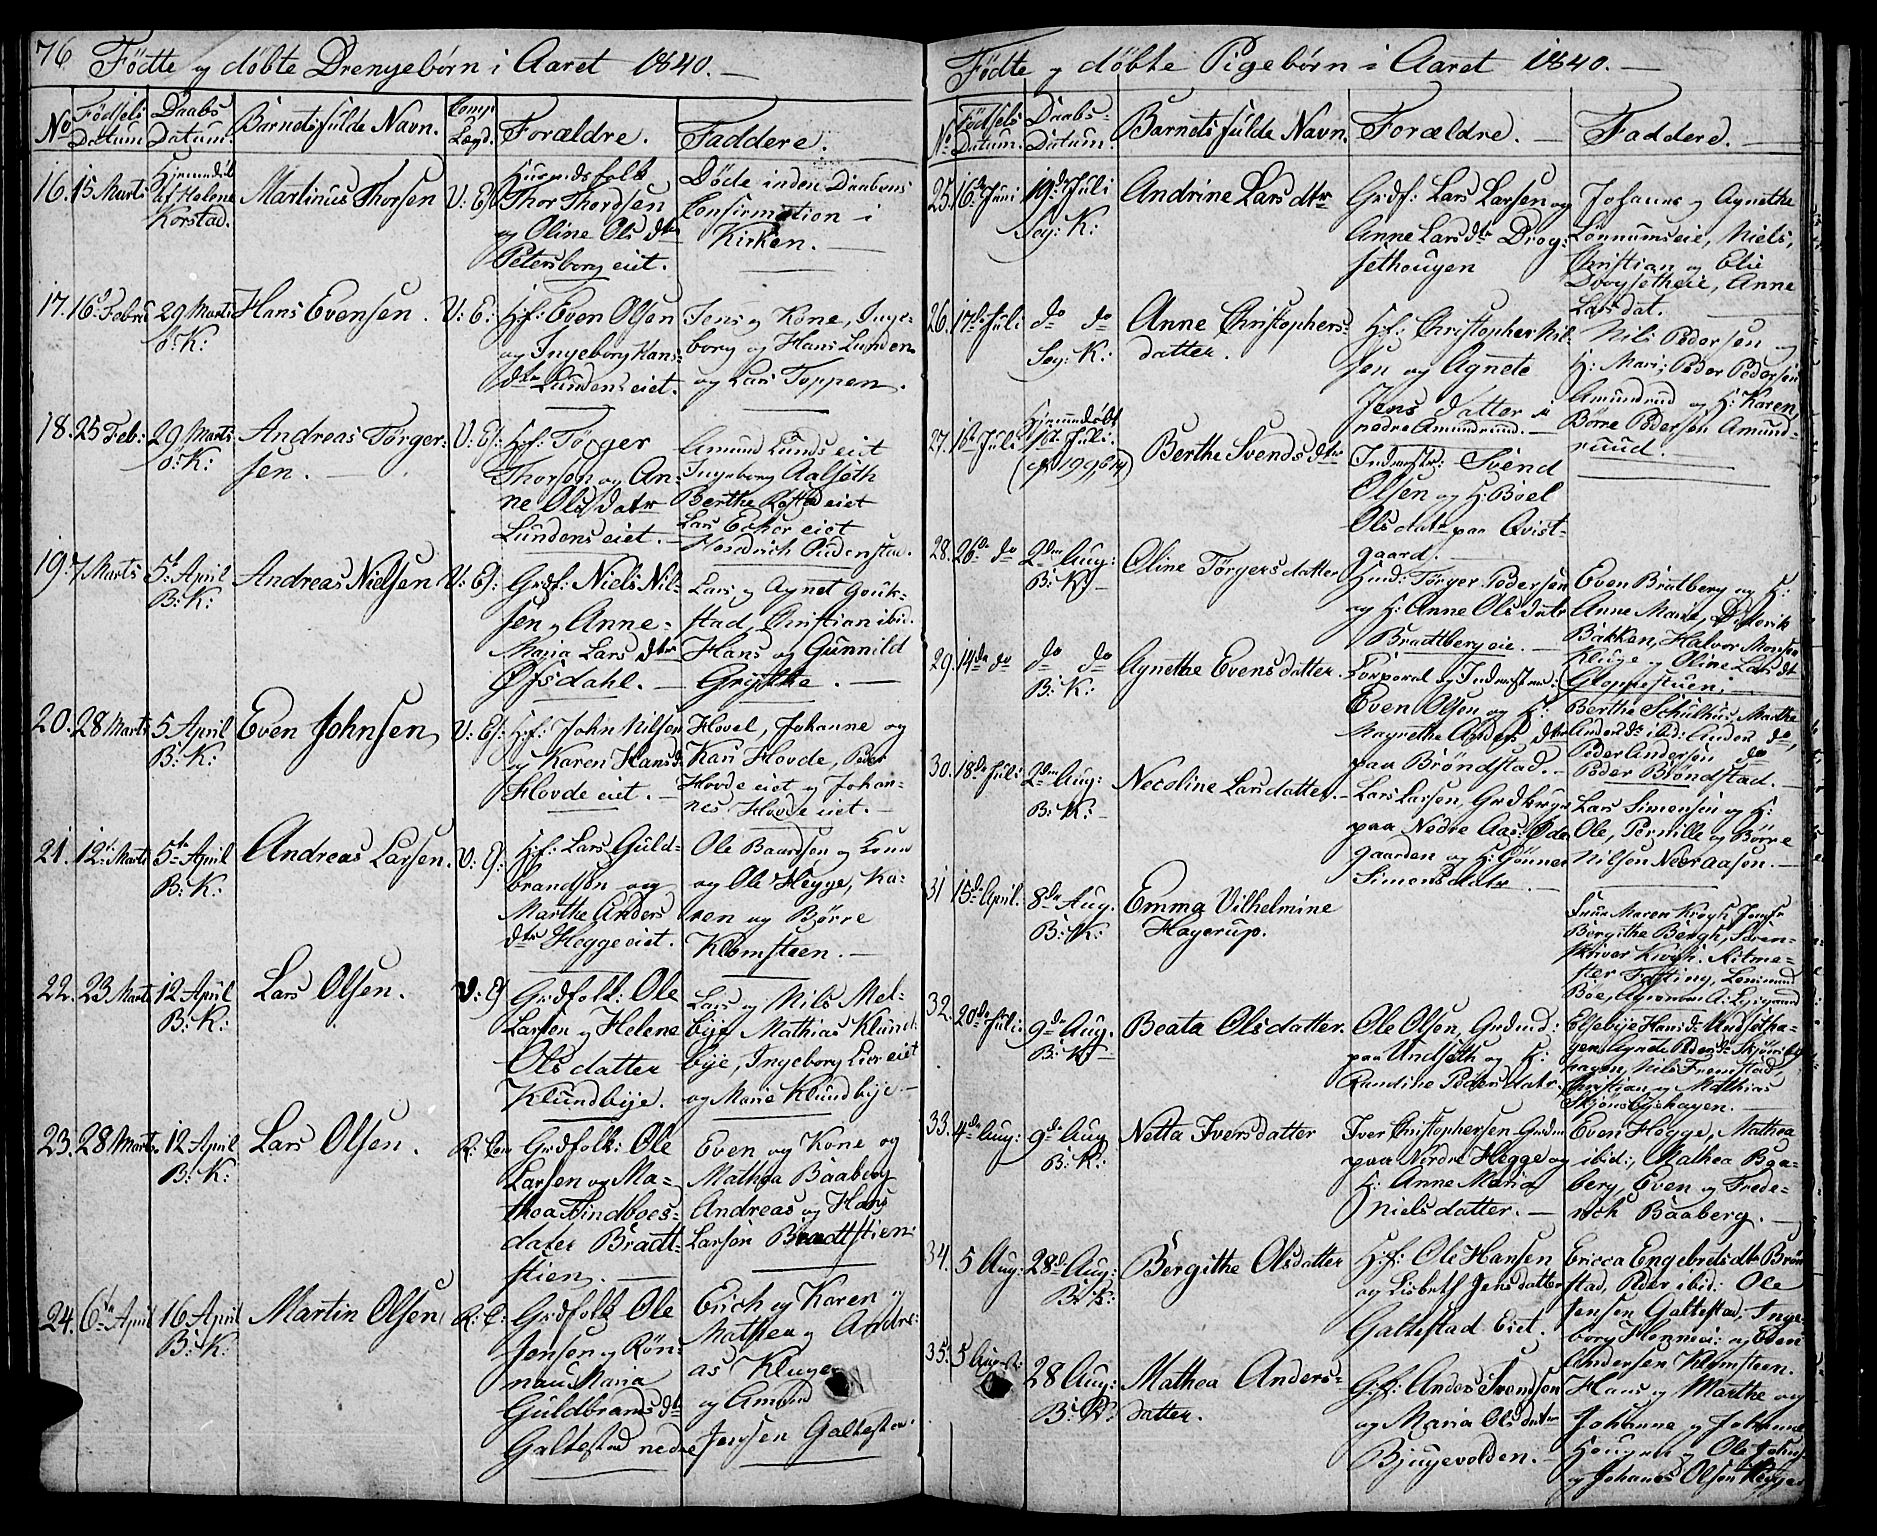 76
Födte og döbte Drengebörn i Aaret 1840.
No
Födsels Datum
Daabs Datum.
Barnets fulde Navn.
Comp. Lægd.
Forældre.
Faddere.
16.
15 Marts
Hjemmedöbt
af Helene
Korstad.
Martinus Thorsen
V:
Huusmdsfolk
Thor Thordsen
og Oline Ols dtr
Petersborg eiet.
Döde inden Daabens
Confirmation i
Kirken.
17.
16 Febru
29 Marts
Ö: K:
Hans Evensen.
V: E:
H.f: Even Olsen
og Ingeborg Hans
dtr Lundens eiet.
Jens og Kone, Inge-
borg og Hans Lunden
og Lars Toppen.
18.
25 Feb:
29 Marts
Ö: K:
Andreas Törger-
sen.
H.f: Törger
Thorsen og An-
ne Ols datr
Lundens eiet.
Amund Lunds eiet
Ingeborg Aalseth
Berthe eiet
Lars eiet
19.
7 Marts
5t April
B: K:
Andreas Nielsen
Grdf: Niels Nil-
sen og Anne
Maria Lars dtr
Öfsdahl.
Lars og Agnet
stad, Christian ibid.
Hans og Gunnild
Grytthe.
20.
28 Marts
5 April
B: K:
Even Johnsen
H.f: John Nilsen
og Karen Hansd.
Hovde eiet.
Hovel, Johanne og
Kari Hovde, Peder
Hovde eiet og Johan-
nes Hovde eiet.
21.
12 Marts
5te April
B: K:
Andreas Larsen.
H.f: Lars Guld-
brandsen og
Marthe Anders
dtr Hegge eiet.
Ole Baardsen og Kone
og Ole Hegge, Ka-
ren og Börre
Klomsteen.
22.
23 Marts
12 April
B: K:
Lars Olsen.
Grdfolk: Ole
Larsen og Helene
Ols datter
Klundbije.
Lars og Nils Mel-
bije, Mathias Klund-
bije, Ingeborg Lier eiet
og Marie Klundbije.
23.
28 Marts
12 April
B: K:
Lars Olsen.
Grdfolk: Ole
Larsen og Ma-
thea Findboes-
dater Bradt-
stien.
Even og Kone og
Mathea Baaberg
Andreas og Hans
Larsen Bradtstien.
24.
6te April
16 April
B: K:
Martin Olsen
Grdfolk Ole
Jensen og Rön-
nau Maria
Guldbrans dtr
Galtestad nedre
Erich og Karen og
Mathea og Andre-
as Kluge
og Amund
Jensen Galtestad
Födte og döbte Pigebörn i Aaret 1840.
No
Födsels Datum.
Daabs Datum.
Barnets fulde Navn.
Forældre.
Faddere.
25.
16de Juni
19de Juli
Andrine Lars dtr
Grdf: Lars Larsen og
Anne Lars dtr Drog-
sethougen
Johannes og Agnethe
Lönnums eie, Niels,
Christian og Elie
Drogsetheie, Anne
Larsdat.
26.
17de Juli
do do
Anne Christophers-
datter.
H.f: Christopher Nil-
sen og Agnete
Jens datter
nedre Amundrud.
Nils Pedersen og
H: Mari; Peder Pedersen
Amundrud og H: Karen,
Börre Pedersen Amund-
ruud.
27.
Juli
Hjemmedöbt
Juli
Berthe Svends dtr
Inderstr: Svend
Olsen og H: Boel
Ols datr paa Qvist-
gaard.
28.
26de do
2den Aug:
B: K:
Oline Törgersdatter
Huusmd: Törger Pedersen
og H: Anne Ols datr
Bradtberg eie.
Even Bratberg og H:
Anne Marie, Diderik
Bakken, Halvor Monsen
Kluge og Oline Lars dtr
Gloppestuen.
29.
14de do
do do
B: K:
Agnethe Evensdatter.
Corporal og Inderstmd:
Even Olsen og H:
Magnethe Anders dtr
paa Bröndstad.
Berthe Schulhus, Marthe
Anders dtr ibid: Anders do,
Peder Andersen do
Peder Bröndstad.
30.
18de Juli
2den Aug:
B: K:
Necoline Larsdatter.
Lars Larsen, Grdbruger
paa Nedre Aas: Öde
gaarden og H: Gönner
Simensdatr.
Lars Simensen og H:
Ole, Pernille og Börre
Nilsen Neeraasen.
31
15de April.
8de Aug.
B: K:
Emma Vilhelmine
Hagerup.
Frue Maren Krogh, Jomfr
Bergithe Bergh, Soren-
skriver Krogh. Ritme-
ster
32.
20de Juli:
9de Aug.
B: K:
Beata Olsdatter.
Ole Olsen, Grdmd:
paa Undseth og H:
Randine Pedersdatr.
hagen, Nils
Christian og Mathias
Skjönsbyhagen.
33.
4de Aug:
9de Aug
B: K:
Netta Iversdatter
Iver Christophersen Grdmd
paa Nordre Hegge og
H: Anne Maria
Nielsdatter.
Even Hegge, Mathea
ibid:, Mathea Baa-
berg, Even og Frede-
rich Baaberg.
34.
5 Aug:
28de Aug:
B: K:
Bergithe Olsdatter
H.f: Ole Hansen
og Lisbeth Jensdatter
Galtestad Eiet.
Ericca Engebretsdtr Brön
stad, Peder ibid: Ole
Jensen Galtestad, Inge-
borg og Eden
Andersen Klomsteen.
35.
5 August:
28 Aug:
B: K:
Mathea Anders-
datter.
G.f: Anders Svendsen
og Maria Ols dater
Bjugevolden.
Hans og Marthe og
Johanne og Johannes
Haugen og Ole
og Johanes Olsen Hegge